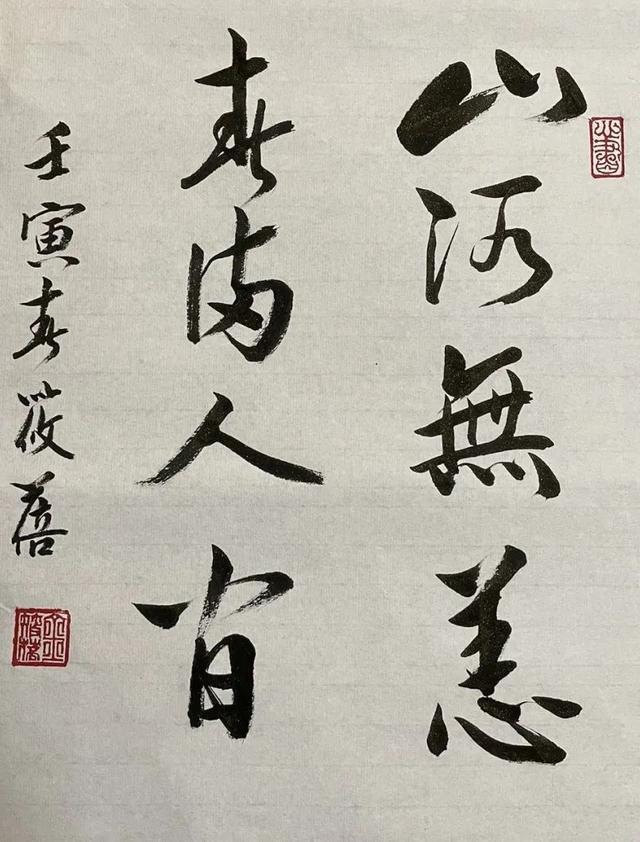 山河無恙
春满人间
壬寅春筱善